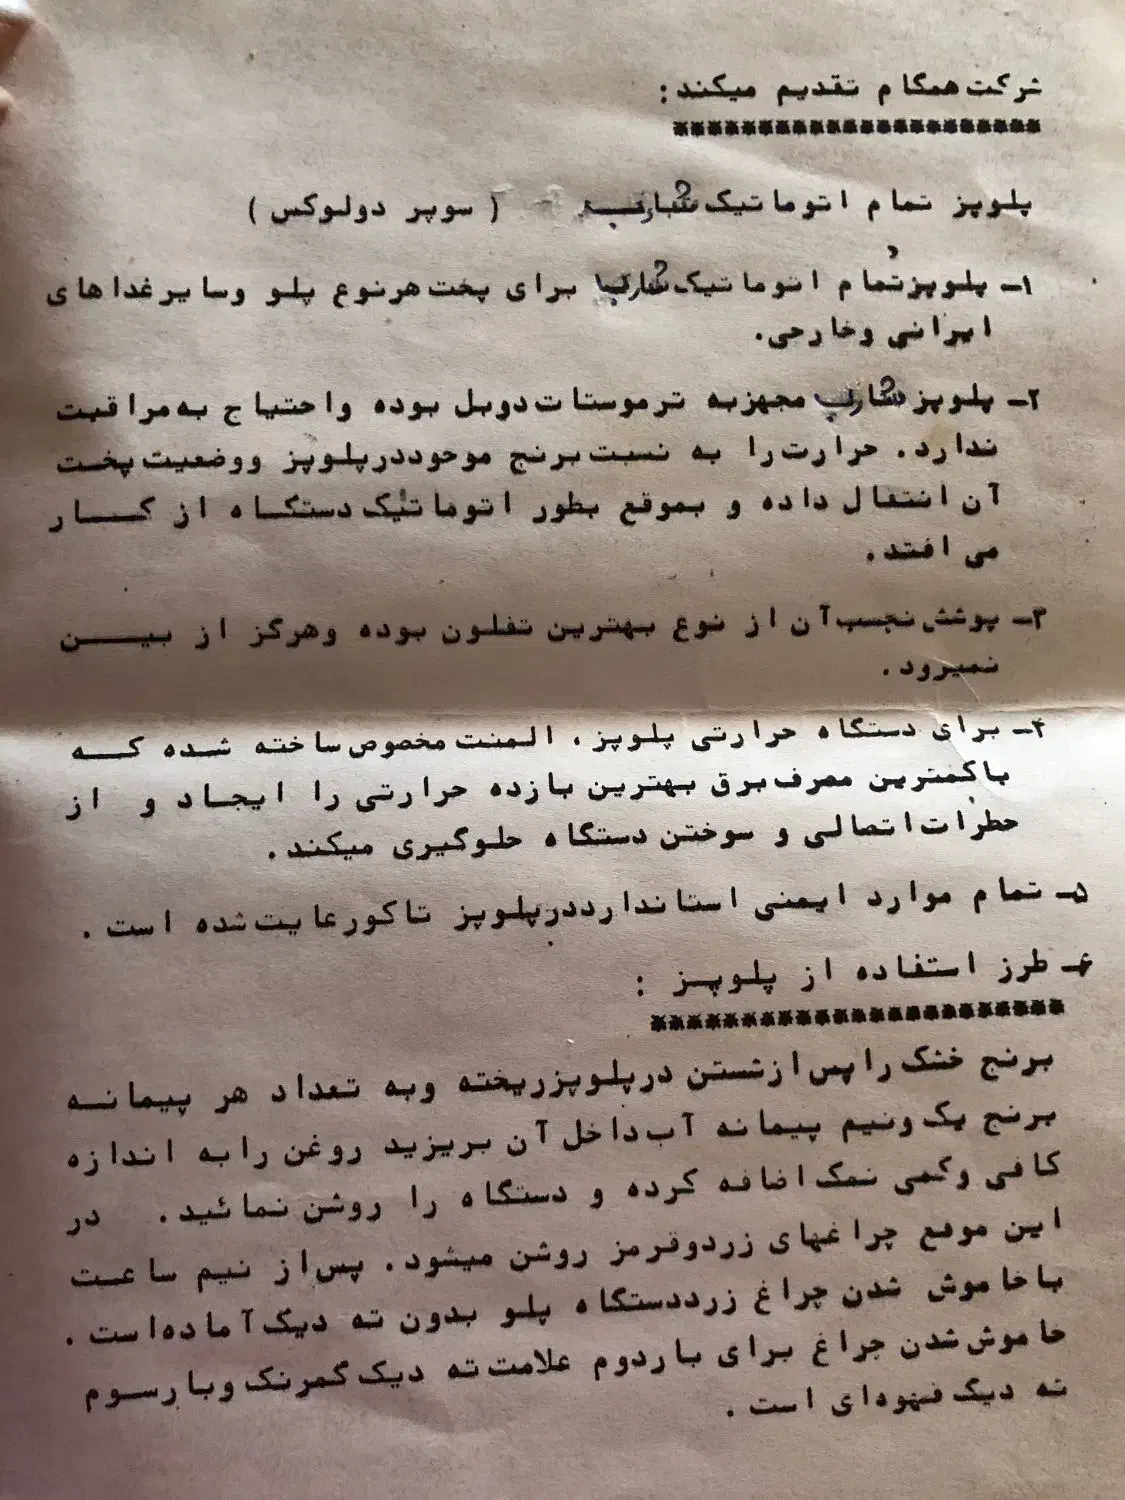 شرکت همگام تقدیم میکند :
**********************
پلوپز تمام اتوماتیک شارپ ( سوپر دولوکس )
۱- پلوپز تمام اتوماتیک شارپ برای پخت هرنوع پلو وسایر غذاهای
ایرانی وخارجی.
۲- پلوپز شارپ مجهزبه ترموستات دوبل بوده واحتیاج به مراقبت
ندارد. حرارت را به نسبت برنج موجوددرپلوپز ووضعیت پخت
آن انتقال داده و بموقع بطور اتوماتیک دستگاه از کار
می افتد.
۳- پوشش نچسب آن از نوع بهترین تفلون بوده وهرگز از بین
نمیرود.
۴- برای دستگاه حرارتی پلوپز، المنت مخصوص ساخته شده که
باکمترین مصرف برق بهترین بازده حرارتی را ایجاد و از
خطرات اتصالی و سوختن دستگاه جلوگیری میکند.
۵- تمام موارد ایمنی استاندارددرپلوپز تاکورعایت شده است.
۶- طرز استفاده از پلوپز :
***********************
برنج خشک را پس ازشستن درپلوپزریخته وبه تعداد هر پیمانه
برنج یک ونیم پیمانه آب داخل آن بریزید روغن رابه اندازه
کافی وکمی نمک اضافه کرده و دستگاه را روشن نمائید. در
این موقع چراغهای زردوقرمز روشن میشود. پس از نیم ساعت
باخاموش شدن چراغ زرددستگاه پلو بدون ته دیگ آماده است.
خاموش شدن چراغ برای باردوم علامت ته دیگ کمرنگ وبارسوم
ته دیگ قهوه ای است.